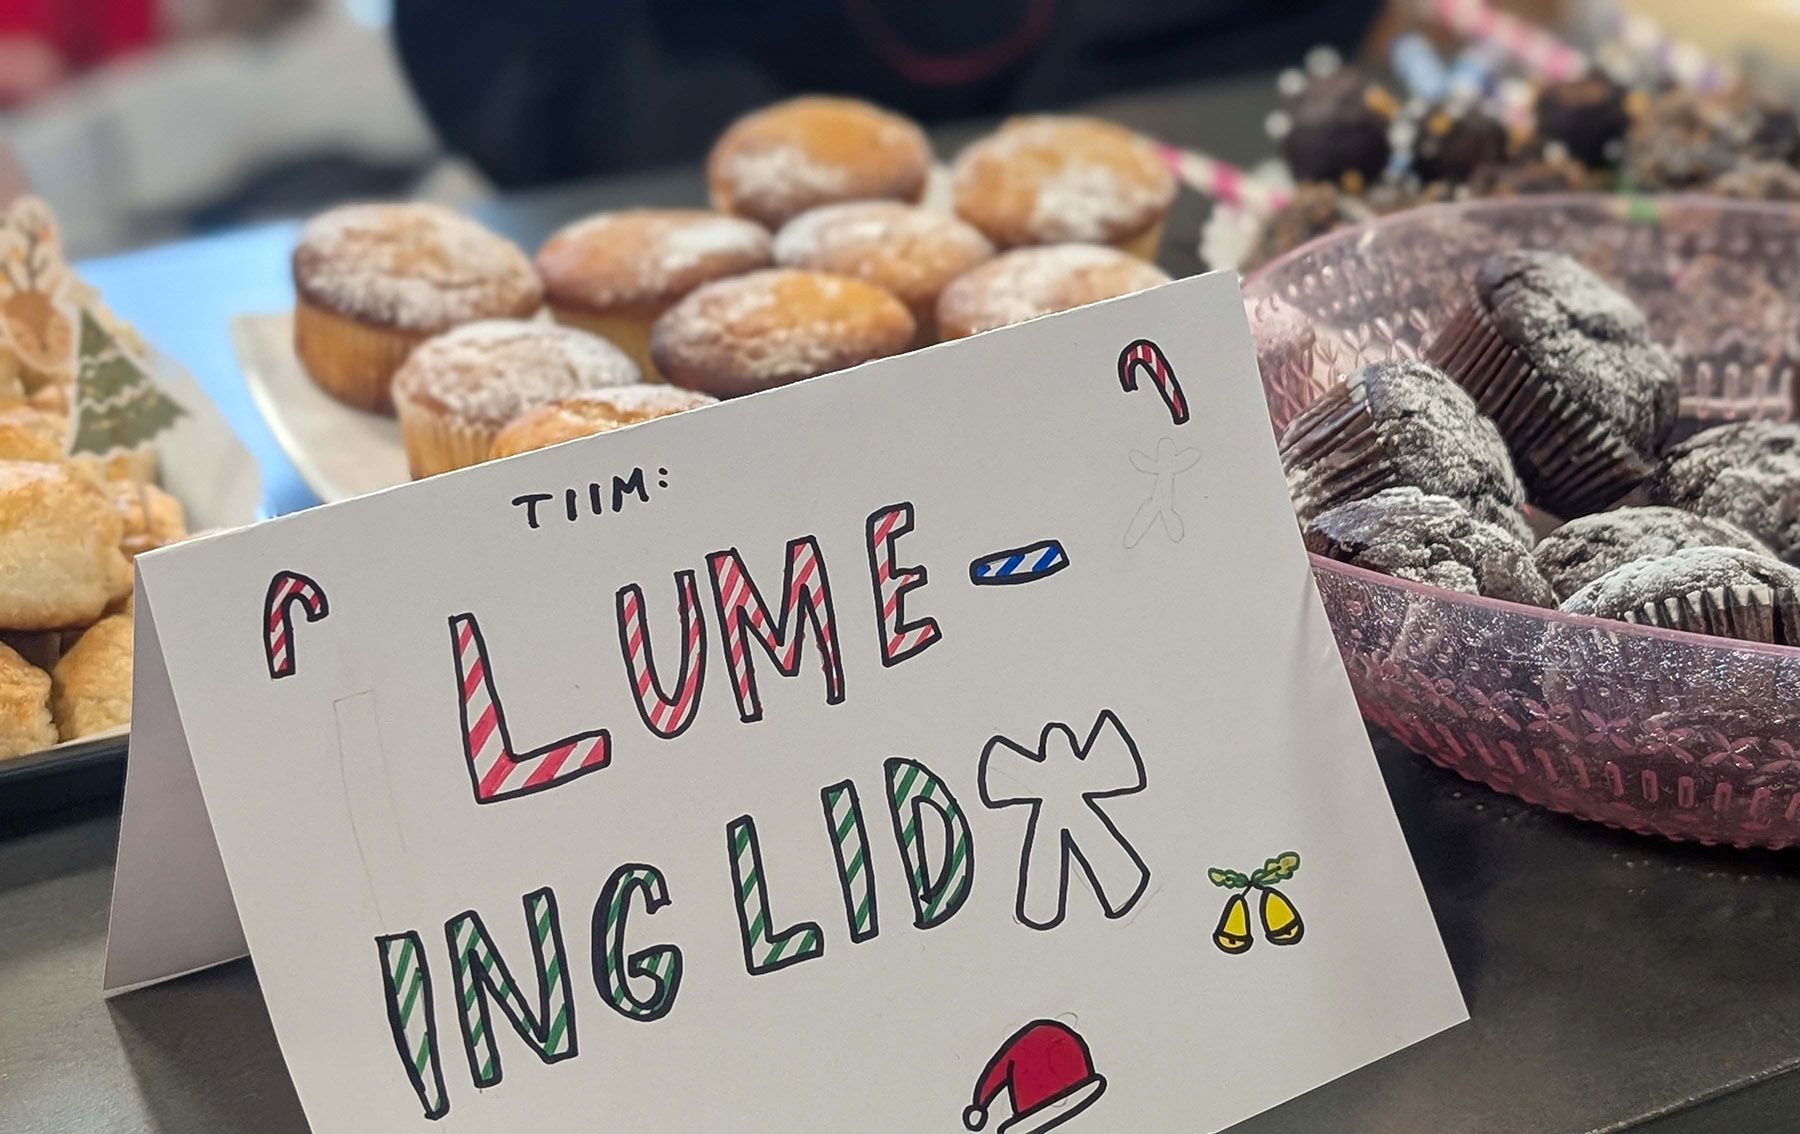 TIIM:
LUME-
INGLID